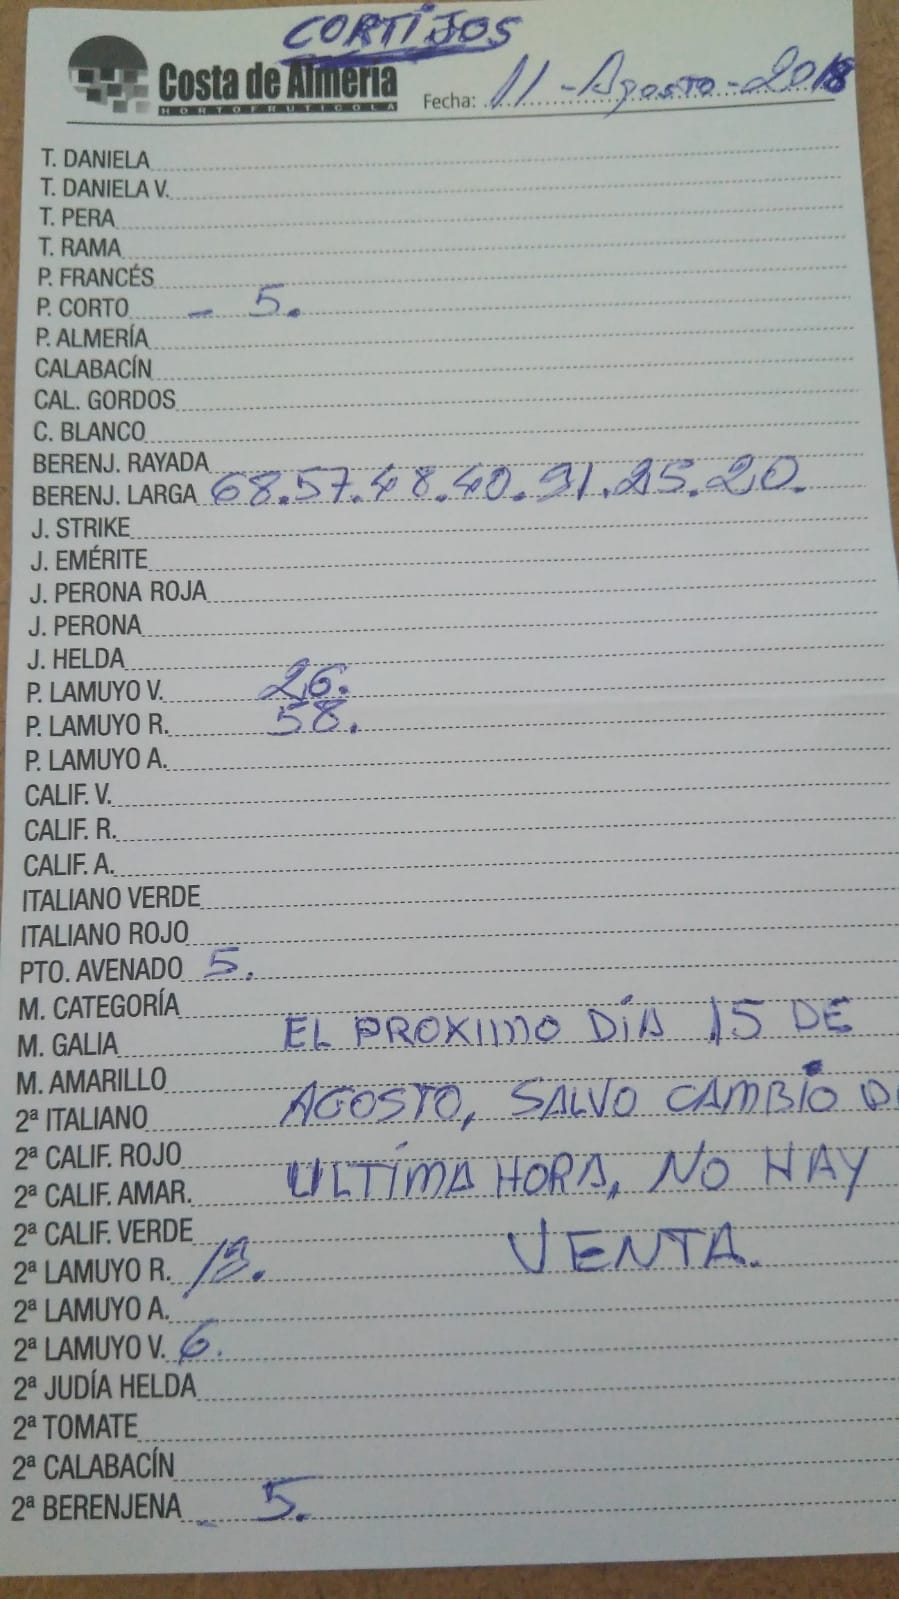 CORTIJOS
Costa de Almería
HORTOFRUTICOLA
Fecha: 11-Agosto-2018
T. DANIELA
T. DANIELA V.
T. PERA
T. RAMA
P. FRANCÉS
P. CORTO - 5.
P. ALMERÍA
CALABACÍN
CAL. GORDOS
C. BLANCO
BERENJ. RAYADA
BERENJ. LARGA 68.57.48.40.31.25.20.
J. STRIKE
J. EMÉRITE
J. PERONA ROJA
J. PERONA
J. HELDA
P. LAMUYO V. 26.
P. LAMUYO R. 58.
P. LAMUYO A.
CALIF. V.
CALIF. R.
CALIF. A.
ITALIANO VERDE
ITALIANO ROJO
PTO. AVENADO 5.
M. CATEGORÍA
M. GALIA EL PROXIMO DÍA 15 DE
M. AMARILLO
2ª ITALIANO AGOSTO, SALVO CAMBIO DE
2ª CALIF. ROJO
2ª CALIF. AMAR. ULTIMA HORA, NO HAY
2ª CALIF. VERDE VENTA.
2ª LAMUYO R. 13.
2ª LAMUYO A.
2ª LAMUYO V. 6.
2ª JUDÍA HELDA
2ª TOMATE
2ª CALABACÍN
2ª BERENJENA - 5.